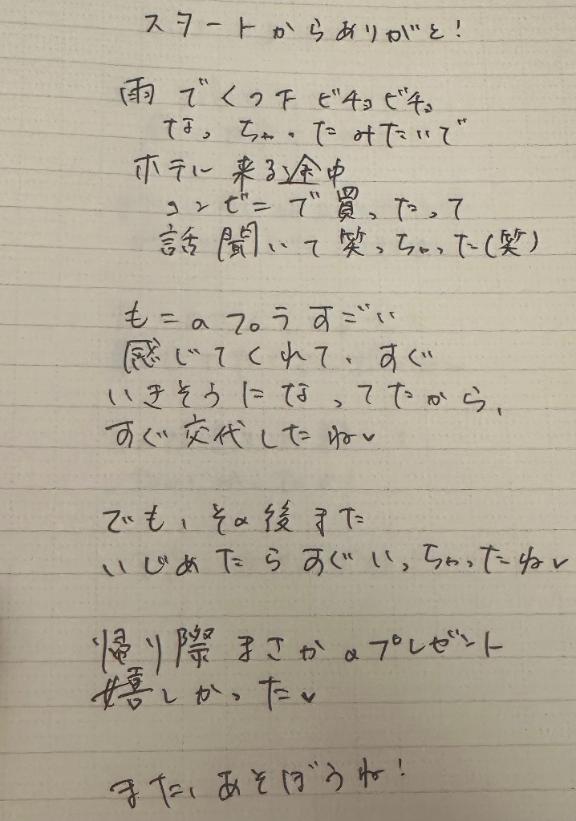 スタートからありがと!
雨でくつ下ビチョビチョ
なっちゃったみたいで
ホテル来る途中
コンビニで買ったって
話聞いて笑っちゃった(笑)
もニのプロうすごい
感じてくれて、すぐ
いきそうになってたから、
すぐ交代したね✓
でも、その後また
いじめたらすぐいっちゃったね✓
帰り際まさかのプレゼント
嬉しかった✓
また、あそぼうね!